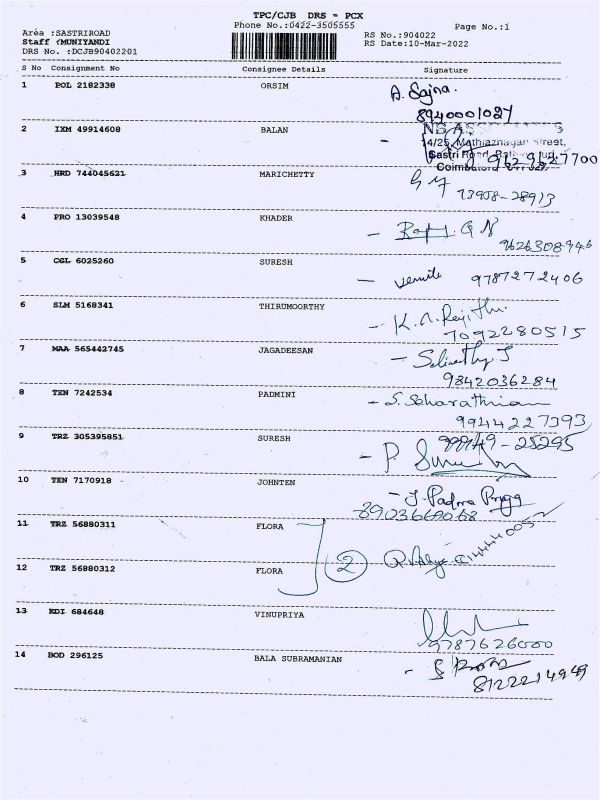 TPC/CJB DRS = PCX
Phone No.:0422-3505555
Page No.:1
Area :SASTRIROAD
RS No.:904022
Staff :MUNIYANDI
RS Date:10-Mar-2022
DRS No. :DCJB90402201
S No Consignment No Consignee Details Signature
1 POL 2182338 ORSIM A. Sajna.
8940001027
2 IXM 49914608 BALAN
14/25, Mathiaznagan Street,
Sastri Road,
Coimbatore
3 HRD 744045621 MARICHETTY
73958-28913
4 PRO 13039548 KHADER
9626308946
5 CGL 6025260 SURESH 9787272406
6 SLM 5168341 THIRUMOORTHY
7092280515
7 MAA 565442745 JAGADEESAN
9842036284
8 TEN 7242534 PADMINI
9944227393
9 TRZ 305395851 SURESH
10 TEN 7170918 JOHNTEN
11 TRZ 56880311 FLORA
2
12 TRZ 56880312 FLORA
13 KDI 684648 VINUPRIYA
9787626000
14 BOD 296125 BALA SUBRAMANIAN
8122214949